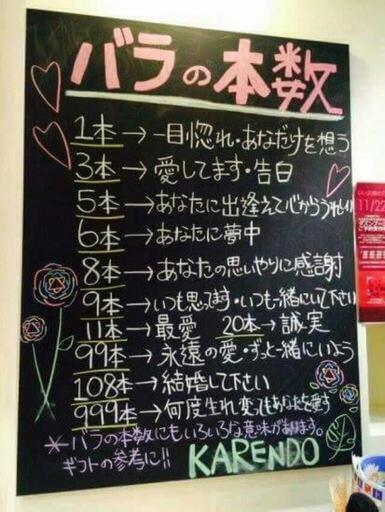 バラの本数
1本→一目惚れ・あなただけを想う
3本→愛してます・告白
5本→あなたに出逢えて心からうれしい
6本→あなたに夢中
8本→あなたの思いやりに感謝
9本→いつも想ってます・いつも一緒にいて下さい
11本→最愛 20本→誠実
99本→永遠の愛・ずっと一緒にいよう
108本→結婚して下さい
999本→何度生れ変ってもあなたを愛す
*バラの本数にもいろいろな意味があります。
ギフトの参考に!!
KARENDO
11/22